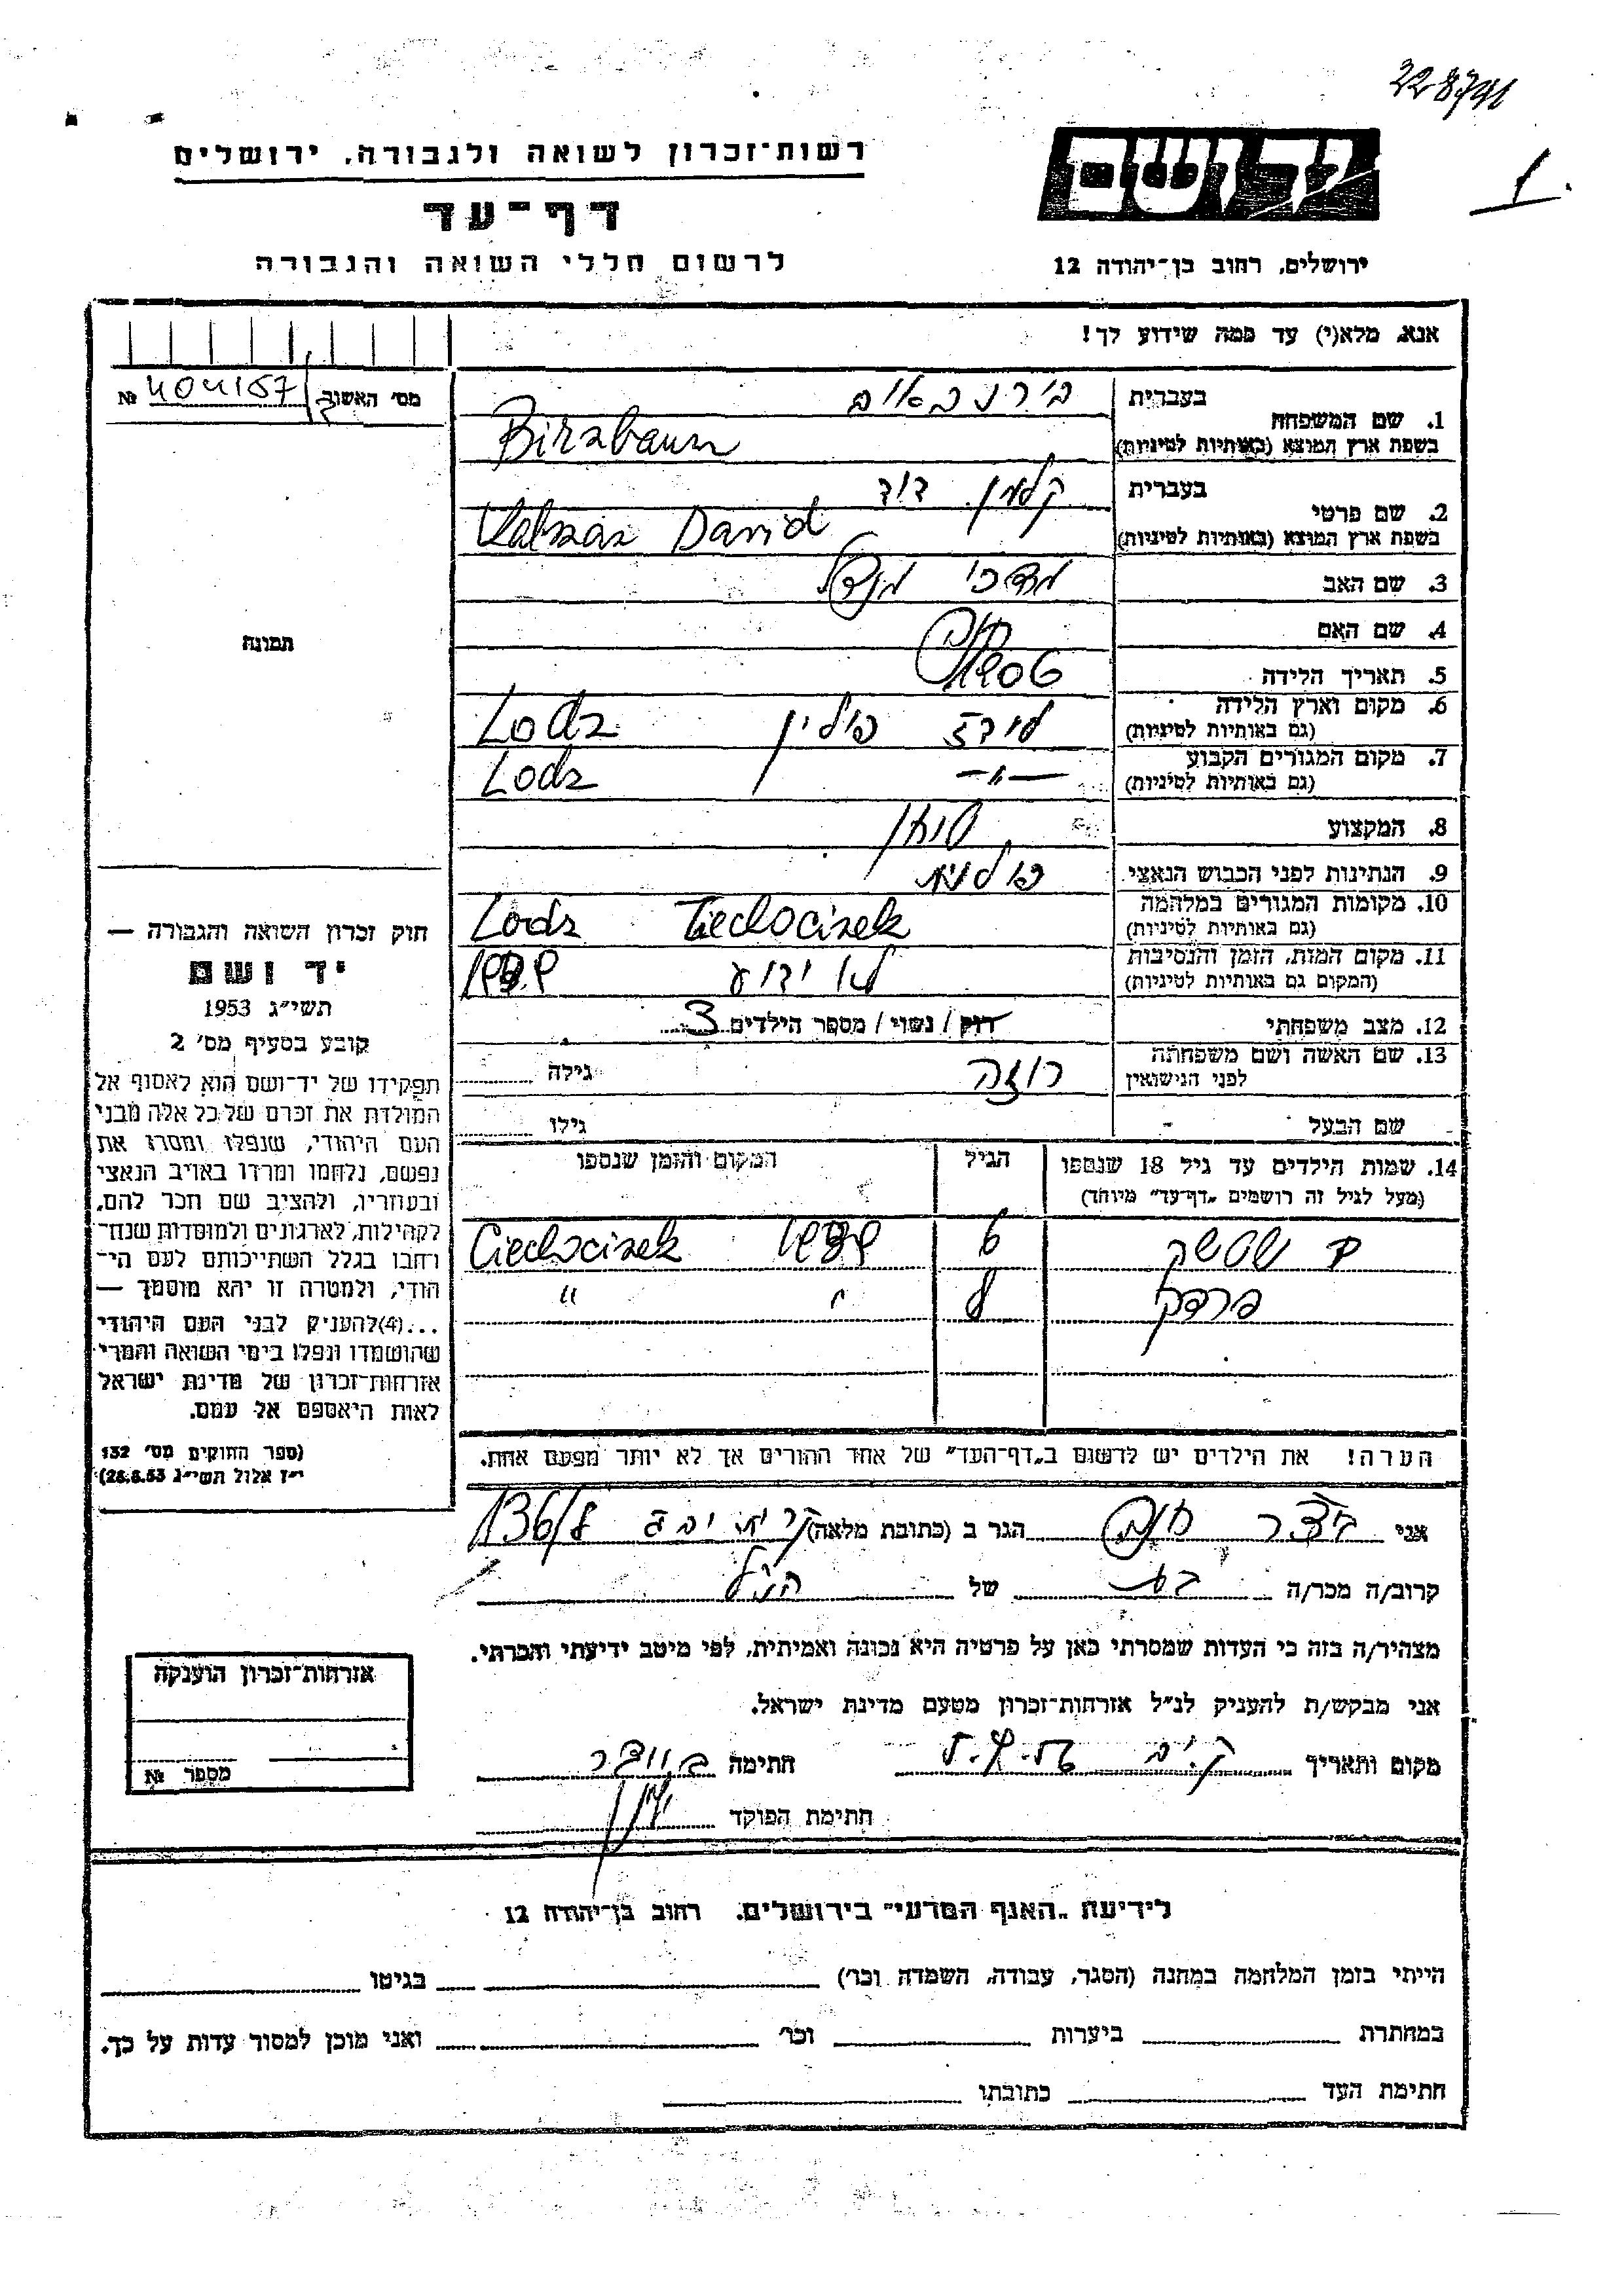 228791
1.
רשות־זכרון לשואה ולגבורה, ירושלים
יד ושם
דף־עד
לרשום חללי השואה והגבורה
ירושלים, רחוב בן־יהודה 12
אנא, מלא(י) עד כמה שידוע לך!
מס' האשור № 404157
1. שם המשפחה
בעברית בירנבאום
בשפת ארץ המוצא (באותיות לטיניות) Birnbaum
2. שם פרטי
בעברית קלמן דוד
בשפת ארץ המוצא (באותיות לטיניות) Kalman David
3. שם האב מרדכי מנדל
4. שם האם
5. תאריך הלידה 1906
6. מקום וארץ הלידה לודז פולין Lodz
(גם באותיות לטיניות)
7. מקום המגורים הקבוע —"— Lodz
(גם באותיות לטיניות)
8. המקצוע סוחר
9. הנתינות לפני הכבוש הנאצי פולנית
10. מקומות המגורים במלחמה Lodz Ciechocinek
(גם באותיות לטיניות)
11. מקום המות, הזמן והנסיבות לא ידוע 1939
(המקום גם באותיות לטיניות)
12. מצב משפחתי רוק / נשוי / מספר הילדים 3
13. שם האשה ושם משפחתה רוזה גילה
לפני הנישואין
שם הבעל - גילו
14. שמות הילדים עד גיל 18 שנספו הגיל המקום והזמן שנספו
(מעל לגיל זה רושמים „דף־עד” מיוחד)
6 1939 Ciechocinek
8 " "
הערה! את הילדים יש לרשום ב„דף־העד” של אחד ההורים אך לא יותר מפעם אחת.
תמונה
חוק זכרון השואה והגבורה —
יד ושם
תשי״ג 1953
קובע בסעיף מס' 2
תפקידו של יד־ושם הוא לאסוף אל
המולדת את זכרם של כל אלה מבני
העם היהודי, שנפלו ומסרו את
נפשם, נלחמו ומרדו באויב הנאצי
ובעוזריו, ולהציב שם וזכר להם,
לקהילות, לארגונים ולמוסדות שנח־
רבו בגלל השתייכותם לעם הי־
הודי, ולמטרה זו יהא מוסמך —
...(4) להעניק לבני העם היהודי
שהושמדו ונפלו בימי השואה והמרי
אזרחות־זכרון של מדינת ישראל
לאות היאספם אל עמם.
(ספר החוקים מס' 132
י״ז אלול תשי״ג 28.8.53)
אני הגר ב (כתובת מלאה) 136/8
קרוב/ה מכר/ה בת של הנ״ל
מצהיר/ה בזה כי העדות שמסרתי כאן על פרטיה היא נכונה ואמיתית, לפי מיטב ידיעתי והכרתי.
אני מבקש/ת להעניק לנ״ל אזרחות־זכרון מטעם מדינת ישראל.
מקום ותאריך חתימה
חתימת הפוקד
אזרחות־זכרון הוענקה
מספר №
לידיעת „האגף המדעי” בירושלים, רחוב בן־יהודה 12
הייתי בזמן המלחמה במחנה (הסגר, עבודה, השמדה וכו') בגיטו
במחתרת ביערות וכו' ואני מוכן למסור עדות על כך.
חתימת העד כתובתו